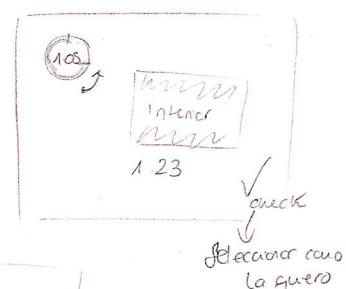 10s
Interior
1.23
check
Seleccionar como
la quiero